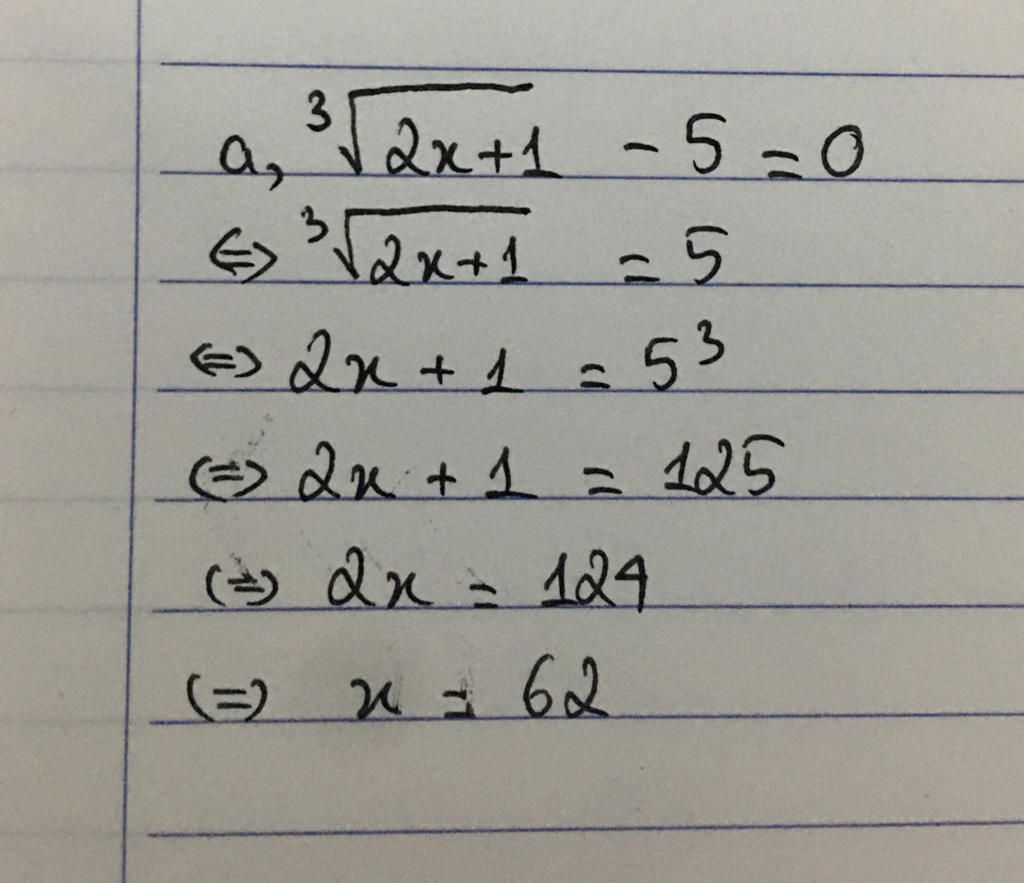 a, ³√(2x+1) - 5 = 0
⇔ ³√(2x+1) = 5
⇔ 2x + 1 = 5³
⇔ 2x + 1 = 125
⇔ 2x = 124
⇔ x = 62